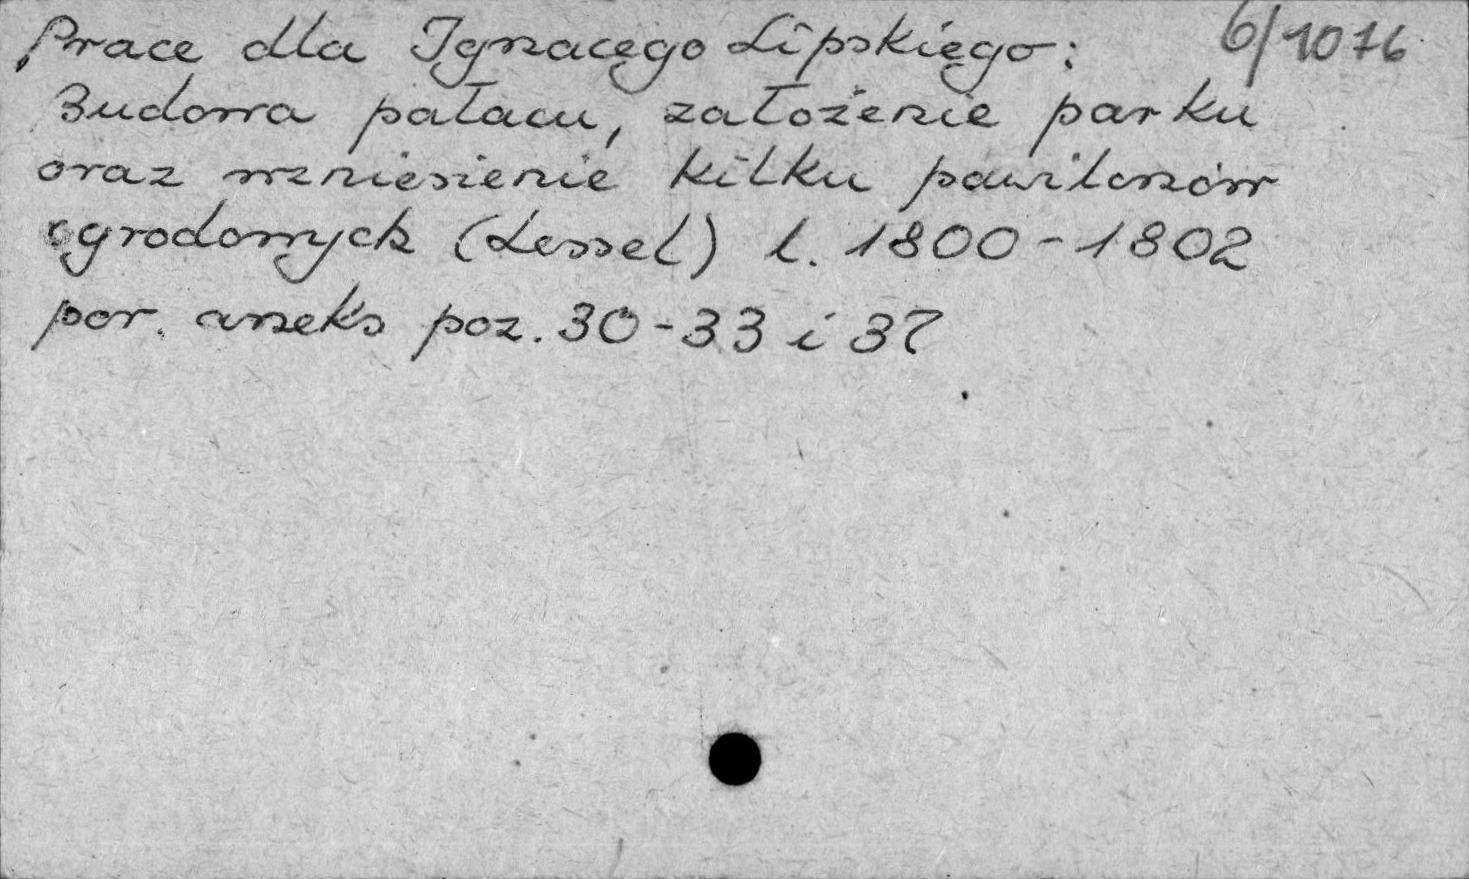 Prace dla Ignacęgo Lipskięgo: 6/1076
Budowa pałacu, założenie parku
oraz wzniesienie kilku pawilonów
ogrodowych (Lessel) l. 1800-1802
por. aneks poz. 30-33 i 37